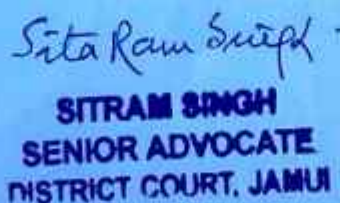 Sita Ram Singh
SITRAM SINGH
SENIOR ADVOCATE
DISTRICT COURT, JAMUI